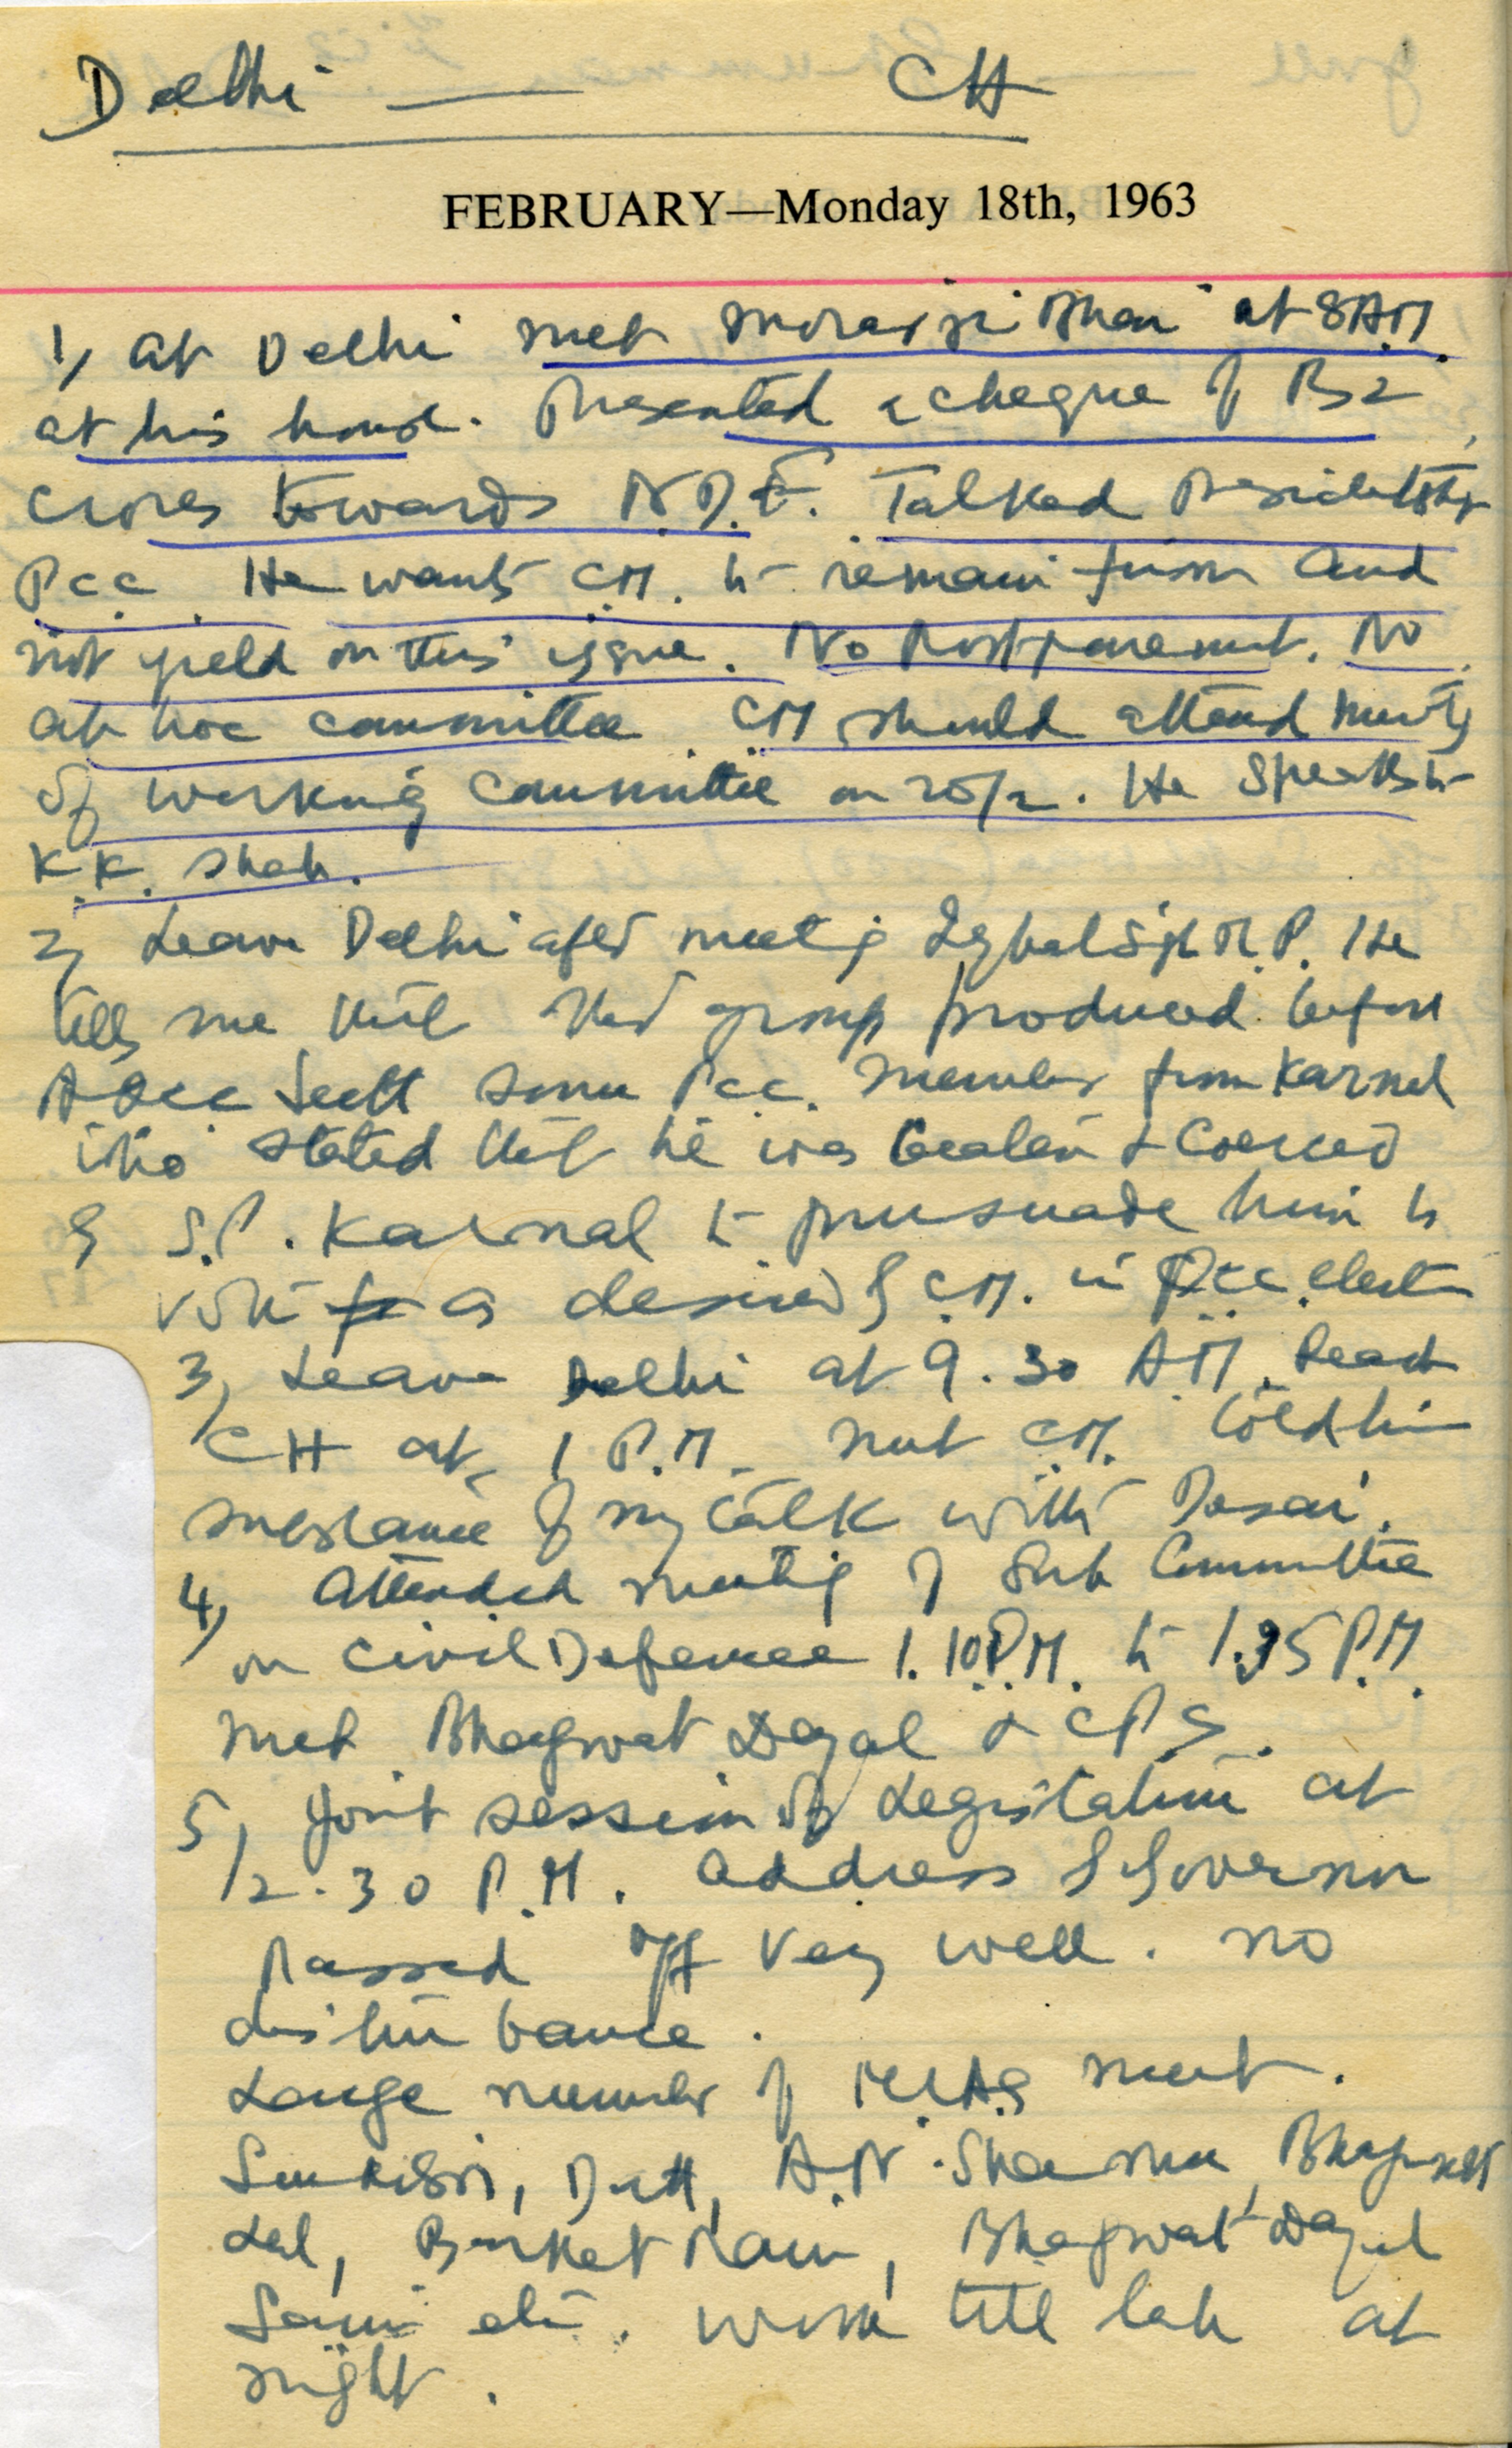 Delhi — CH
FEBRUARY—Monday 18th, 1963
1, at Delhi met Morarji Bhai at 8 AM.
at his house. Presented a cheque of Rs 2
crores towards N.D.F. Talked Presidentship
PCC. He wants C.M. to remain firm and
not yield on this issue. No postponement. No
ad hoc committee CM should attend meeting
of working committee on 20/2. He speaks to
K.K. Shah.
2, Leave Delhi after meeting Iqbal Singh M.P. He
tells me that other group produced before
AICC Sectt some PCC. member from Karnal
who stated that he was beaten & coerced
by S.P. Karnal to pursuade him to
vote as desired by C.M. in PCC election
3, Leave Delhi at 9.30 AM. Reach
CH at 1 P.M. met C.M. told him
substance of my talk with Desai.
4, Attended meeting of Sub Committee
on Civil Defence 1.10 P.M. to 1.35 P.M.
met Bhagwat Dayal & CPS.
5, Joint session of Legislature at
2.30 P.M. address by Governor
passed off very well. no
disturbance.
Large number of MLAs meet.
Dutt, A.N. Sharma,
Lal, Barket Ram, Bhagwat Dayal
Saini etc. work till late at
night.